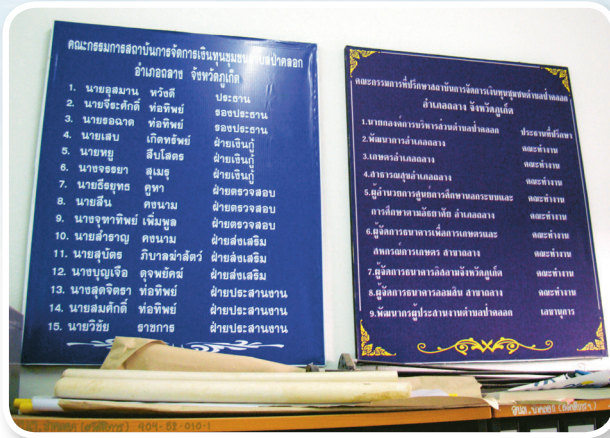 คณะกรรมการสถาบันการจัดการเงินทุนชุมชนตำบลป่าคลอก
อำเภอถลาง จังหวัดภูเก็ต
1. นายอุสมาน หวังดี ประธาน
2. นายจีระศักดิ์ ท่อทิพย์ รองประธาน
3. นายรอฉาด ท่อทิพย์ รองประธาน
4. นายเสบ เกิดทรัพย์ ฝ่ายเงินกู้
5. นายหยู สืบโสตร ฝ่ายเงินกู้
6. นางจรรยา สุเมธุ ฝ่ายเงินกู้
7. นายธีรยุทธ คูหา ฝ่ายตรวจสอบ
8. นายสีน คงนาม ฝ่ายตรวจสอบ
9. นางจุฑาทิพย์ เพิ่มพูล ฝ่ายตรวจสอบ
10. นายสำราญ คงนาม ฝ่ายส่งเสริม
11. นายสุบัตร ภิบาลฆ่าสัตว์ ฝ่ายส่งเสริม
12. นางบุญเจือ ดุจพยัคฆ์ ฝ่ายส่งเสริม
13. นางสุดจิตรา ท่อทิพย์ ฝ่ายประสานงาน
14. นายสมศักดิ์ ท่อทิพย์ ฝ่ายประสานงาน
15. นายวิชัย ราชการ ฝ่ายประสานงาน
คณะกรรมการที่ปรึกษาสถาบันการจัดการเงินทุนชุมชนตำบลป่าคลอก
อำเภอถลาง จังหวัดภูเก็ต
1.นายกองค์การบริหารส่วนตำบลป่าคลอก ประธานที่ปรึกษา
2.พัฒนาการอำเภอถลาง คณะทำงาน
3.เกษตรอำเภอถลาง คณะทำงาน
4.สาธารณสุขอำเภอถลาง คณะทำงาน
5.ผู้อำนวยการศูนย์การศึกษานอกระบบและ คณะทำงาน
การศึกษาตามอัธยาศัย อำเภอถลาง
6.ผู้จัดการธนาคารเพื่อการเกษตรและ คณะทำงาน
สหกรณ์การเกษตร สาขาถลาง
7.ผู้จัดการธนาคารอิสลามจังหวัดภูเก็ต คณะทำงาน
8.ผู้จัดการธนาคารออมสิน สาขาถลาง คณะทำงาน
9.พัฒนากรผู้ประสานงานตำบลป่าคลอก เลขานุการ
409-53-010-1